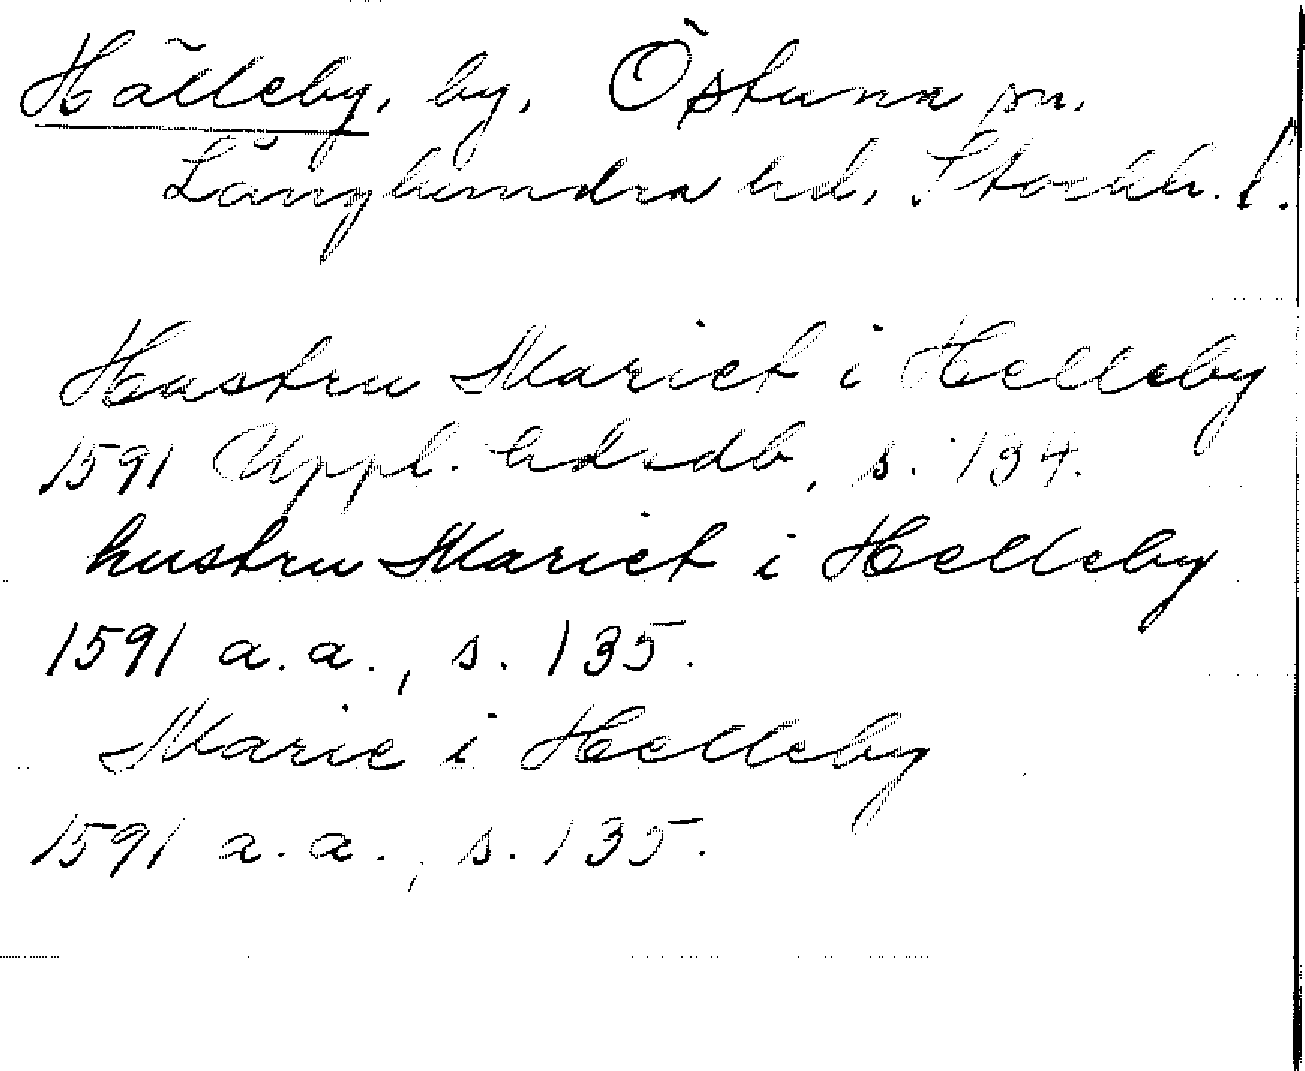 Hälleby, by, Östuna sn.
Långhundra hd, Stockh. l.
Hustru Mariet i Helleby
1591 Uppl. hdrdb, s. 134.
hustru Mariet i Helleby
1591 a.a., s. 135.
Marie i Helleby
1591 a.a., s. 135.